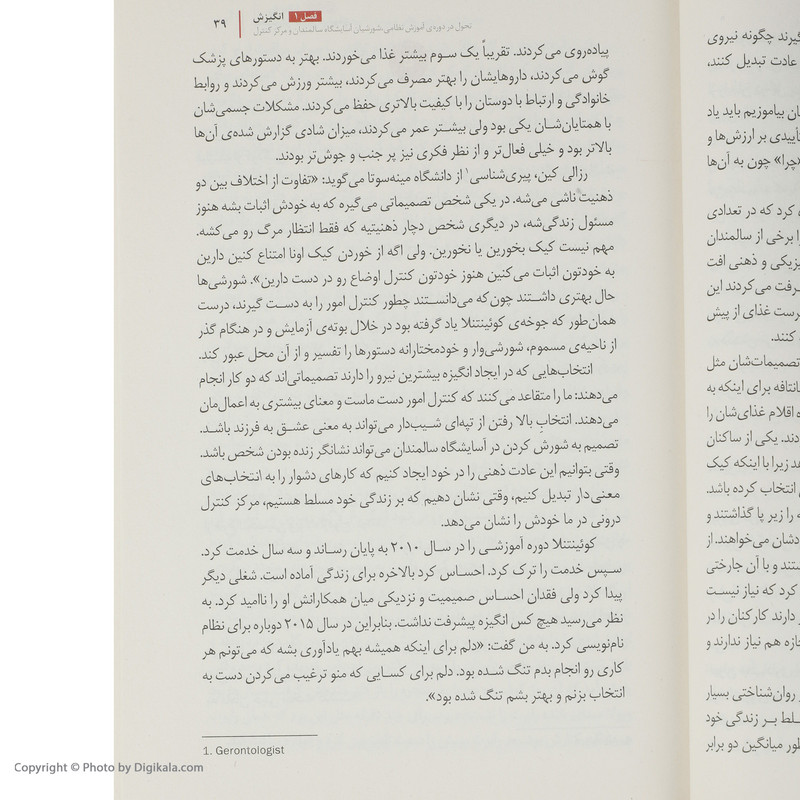 فصل ۱ انگیزش ۳۹
تحول در دوره‌ی آموزش نظامی، شورشیان آسایشگاه سالمندان و مرکز کنترل
پیاده‌روی می‌کردند. تقریباً یک سوم بیشتر غذا می‌خوردند. بهتر به دستورهای پزشک
گوش می‌کردند، داروهایشان را بهتر مصرف می‌کردند، بیشتر ورزش می‌کردند و روابط
خانوادگی و ارتباط با دوستان را با کیفیت بالاتری حفظ می‌کردند. مشکلات جسمی‌شان
با همتایان‌شان یکی بود ولی بیشتر عمر می‌کردند، میزان شادی گزارش شده‌ی آن‌ها
بالاتر بود و خیلی فعال‌تر و از نظر فکری نیز پر جنب و جوش‌تر بودند.
رزالی کین، پیری‌شناسی۱ از دانشگاه مینه‌سوتا می‌گوید: «تفاوت از اختلاف بین دو
ذهنیت ناشی می‌شه. در یکی شخص تصمیماتی می‌گیره که به خودش اثبات بشه هنوز
مسئول زندگی‌شه، در دیگری شخص دچار ذهنیتیه که فقط انتظار مرگ رو می‌کشه.
مهم نیست کیک بخورین یا نخورین. ولی اگه از خوردن کیک اونا امتناع کنین دارین
به خودتون اثبات می‌کنین هنوز خودتون کنترل اوضاع رو در دست دارین». شورشی‌ها
حال بهتری داشتند چون‌که می‌دانستند چطور کنترل امور را به دست گیرند، درست
همان‌طور که جوخه‌ی کوئینتنلا یاد گرفته بود در خلال بوته‌ی آزمایش و در هنگام گذر
از ناحیه‌ی مسموم، شورشی‌وار و خودمختارانه دستورها را تفسیر و از آن محل عبور کند.
انتخاب‌هایی که در ایجاد انگیزه بیشترین نیرو را دارند تصمیماتی‌اند که دو کار انجام
می‌دهند: ما را متقاعد می‌کنند که کنترل امور دست ماست و معنای بیشتری به اعمال‌مان
می‌دهند. انتخابِ بالا رفتن از تپه‌ای شیب‌دار می‌تواند به معنی عشق به فرزند باشد.
تصمیم به شورش کردن در آسایشگاه سالمندان می‌تواند نشانگر زنده بودن شخص باشد.
وقتی بتوانیم این عادت ذهنی را در خود ایجاد کنیم که کارهای دشوار را به انتخاب‌های
معنی‌دار تبدیل کنیم، وقتی نشان دهیم که بر زندگی خود مسلط هستیم، مرکز کنترل
درونی در ما خودش را نشان می‌دهد.
کوئینتنلا دوره آموزشی را در سال ۲۰۱۰ به پایان رساند و سه سال خدمت کرد.
سپس خدمت را ترک کرد. احساس کرد بالاخره برای زندگی آماده است. شغلی دیگر
پیدا کرد ولی فقدان احساس صمیمیت و نزدیکی میان همکارانش او را ناامید کرد. به
نظر می‌رسید هیچ کس انگیزه پیشرفت نداشت. بنابراین در سال ۲۰۱۵ دوباره برای نظام
نام‌نویسی کرد. به من گفت: «دلم برای اینکه همیشه بهم یادآوری بشه که می‌تونم هر
کاری رو انجام بدم تنگ شده بود. دلم برای کسایی که منو ترغیب می‌کردن دست به
انتخاب بزنم و بهتر بشم تنگ شده بود».
1. Gerontologist
گیرند چگونه نیروی
عادت تبدیل کنند،
ان بیاموزیم باید یاد
تأییدی بر ارزش‌ها و
«چرا» چون به آن‌ها
کرد که در تعدادی
ا برخی از سالمندان
یزیکی و ذهنی افت
رفت می‌کردند این
رست غذای از پیش
کنند.
تصمیمات‌شان مثل
انتافه برای اینکه به
ه اقلام غذای‌شان را
دند. یکی از ساکنان
هد زیرا با اینکه کیک
انتخاب کرده باشد.
ه را زیر پا گذاشتند و
دشان می‌خواهند. از
شتند و با آن جارختی
کرد که نیاز نیست
دارند کارکنان را در
جازه هم نیاز ندارند و
روان‌شناختی بسیار
سلط بر زندگی خود
طور میانگین دو برابر
Copyright © Photo by Digikala.com